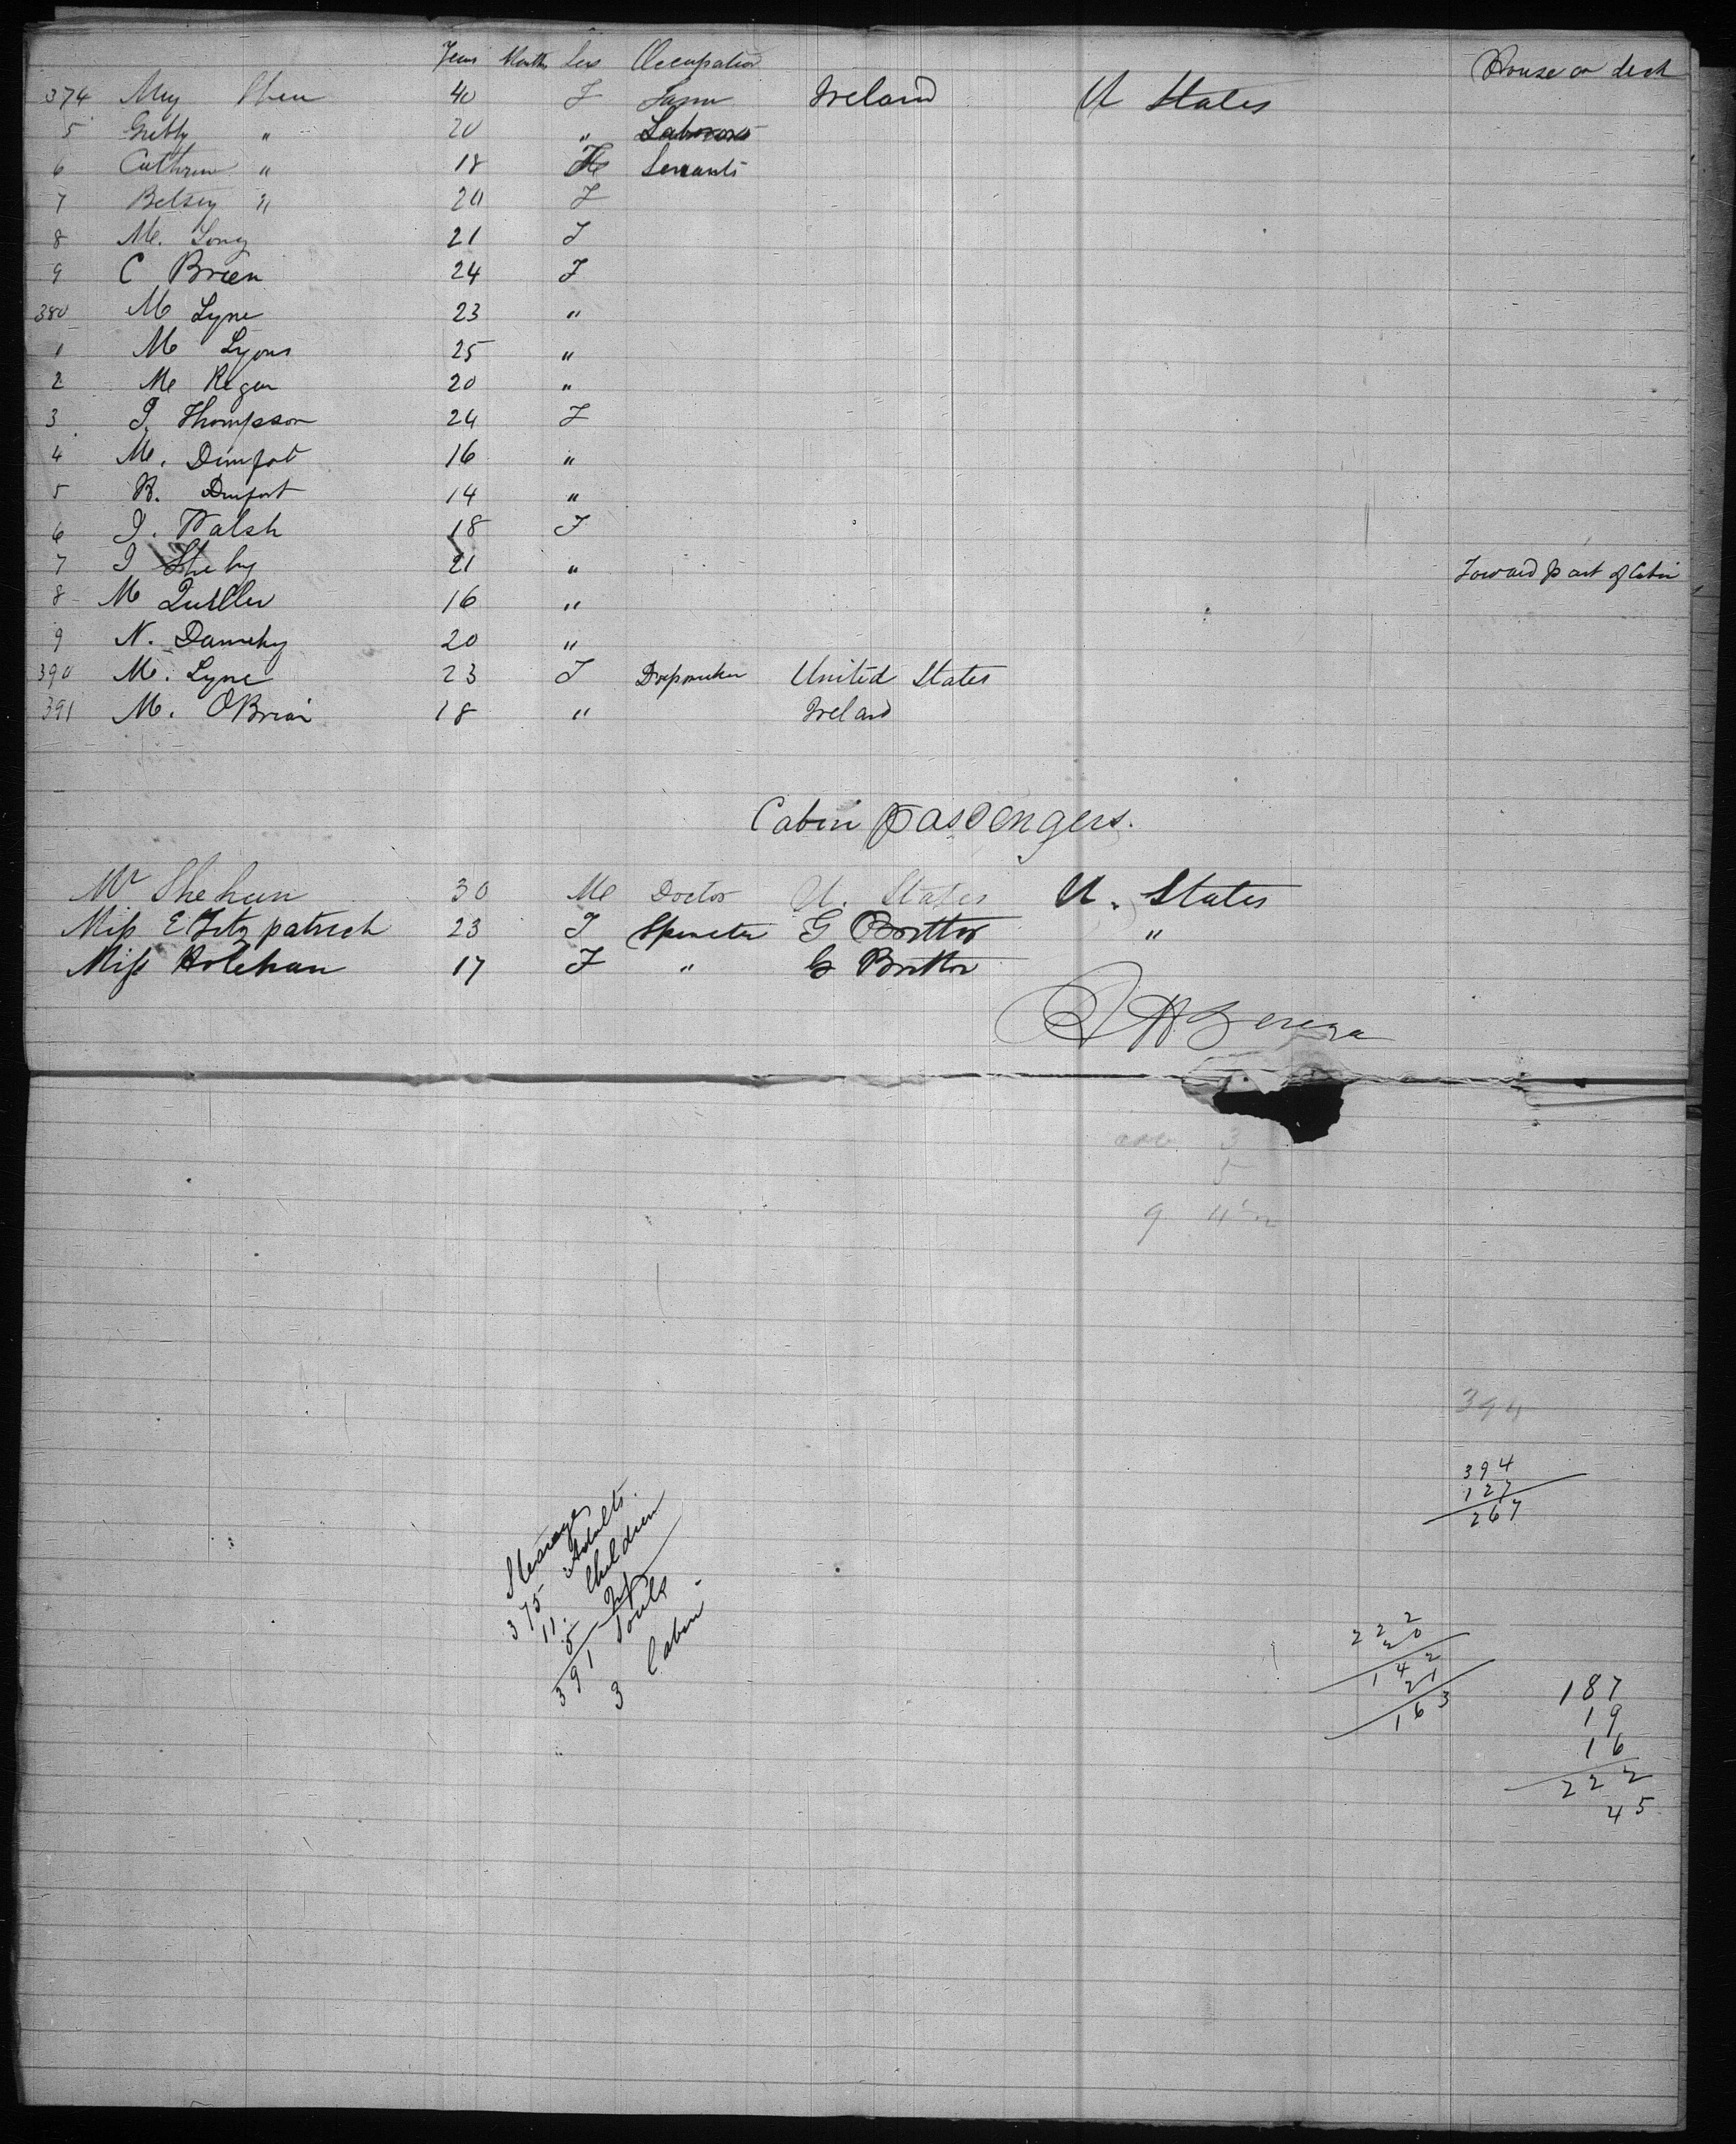 Years Months Sex Occupation House on deck
374 Mey Shea 40 F Farm Ireland U States
5 " 20 " Laborers
6 Cathrine " 18 F Servants
7 Betsey " 20 F
8 M. Long 21 F
9 C Brien 24 F
380 M Lyne 23 "
1 M Lyons 25 "
2 M Regan 20 "
3 J. Thompson 24 F
4 M. Dimfort 16 "
5 B. Dimfort 14 "
6 J. Walsh 18 F
7 J 21 " Forward part of Cabin
8 M 16 "
9 N. 20 "
390 M. Lyne 23 F Dressmaker United States
391 M. OBrian 18 " Ireland
Cabin passengers.
Mr Shehan 30 M Doctor U. States U. States
Miss E Fitzpatrick 23 F Spinster G Britton "
Miss Holehan 17 F " G Britton
3
5
9
394
394
127
267
Stearage
375 Adults.
11. Children
5 Inf
391 Souls
3 Cabin.
222
20
142
21
163
187
19
16
222
45